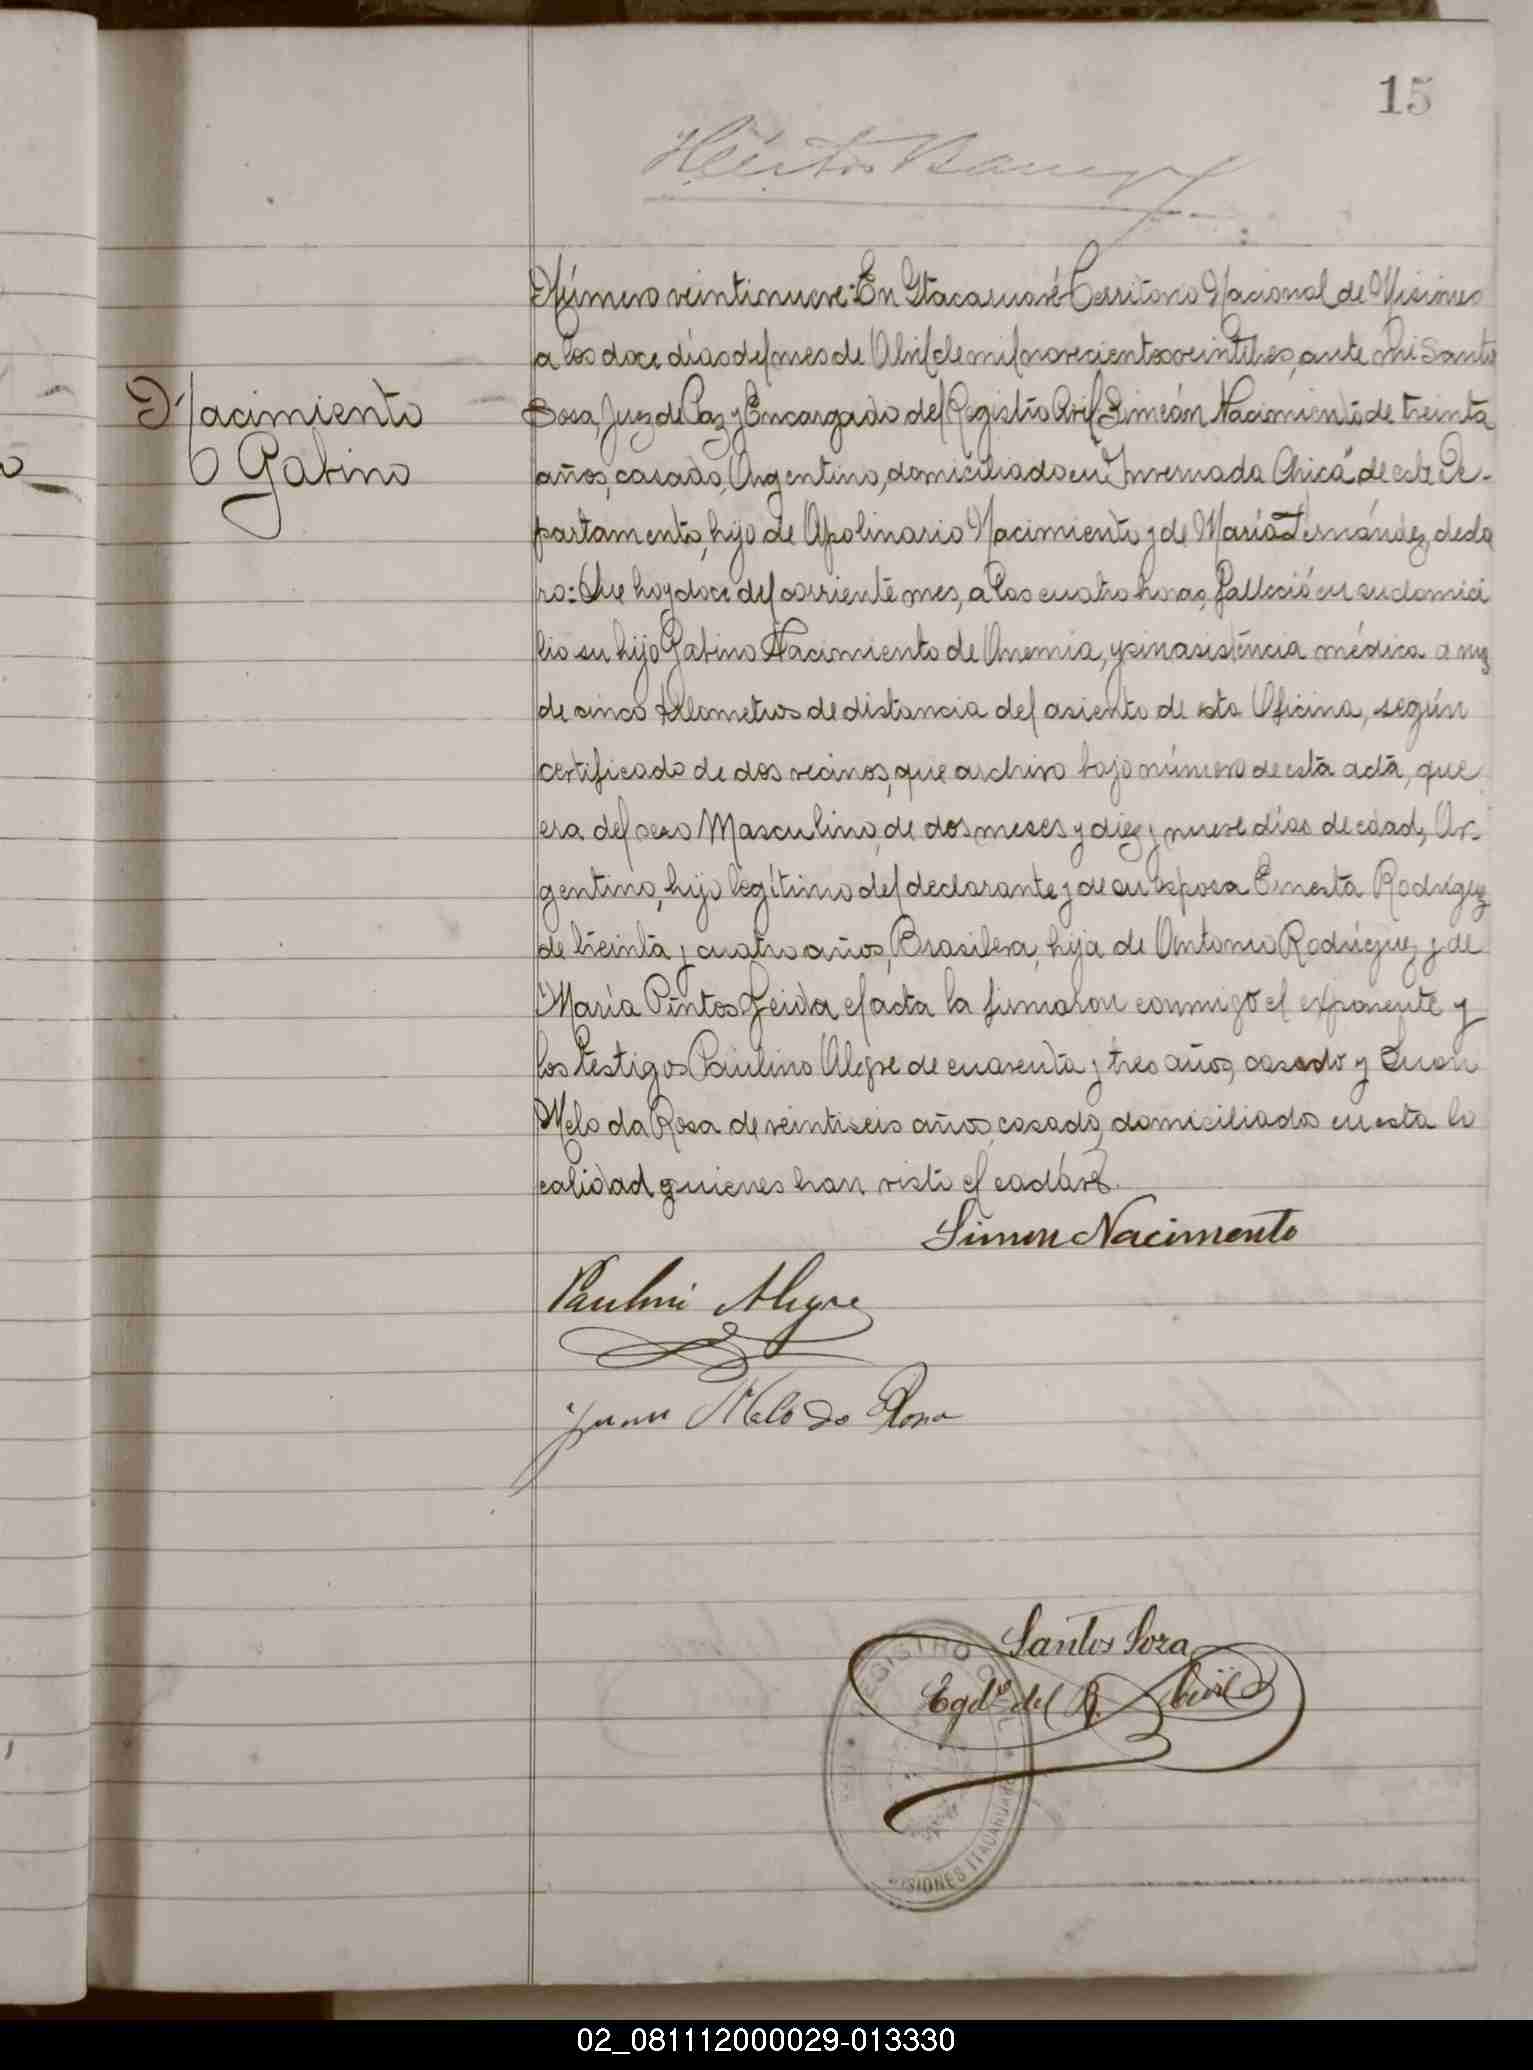 15
Nacimiento
Gabino
Número veintinueve: En Itacaruaré Territorio Nacional de Misiones
a los doce días del mes de Abril de mil novecientos veintitres, ante mi Santos
Sosa, Juez de Paz y Encargado del Registro Civil Simeón Nacimiento de treinta
años, casado, Argentino, domiciliado en "Invernada Chica" de este De-
partamento, hijo de Apolinario Nacimiento y de María Fernández, decla
ro: Que hoy doce del corriente mes, a las cuatro horas, falleció en su domici
lio su hijo Gabino Nacimiento de Anemia, y sin asistencia médica a más
de cinco kilometros de distancia del asiento de esta Oficina, según
certificado de dos vecinos, que archivo bajo número de esta acta, que
era del sexo Masculino, de dos meses y diez y nueve días de edad, Ar-
gentino, hijo legítimo del declarante y de su esposa Ernesta Rodríguez
de treinta y cuatro años, Brasilera, hija de Antonio Rodríguez y de
María Pintos Leida el acta la firmaron conmigo el exponente y
los testigos Paulino Alegre de cuarenta y tres años, casado y Juan
Melo da Rosa de veintiseis años, casado, domiciliados en esta lo
calidad quienes han visto el cadáver.
Simon Nacimento
Paulino Alegre
Juan Melo do Rosa
Santos Soza
Egdo del R. Civil
REGISTRO CIVIL
MISIONES ITACARUARÉ
02_081112000029-013330